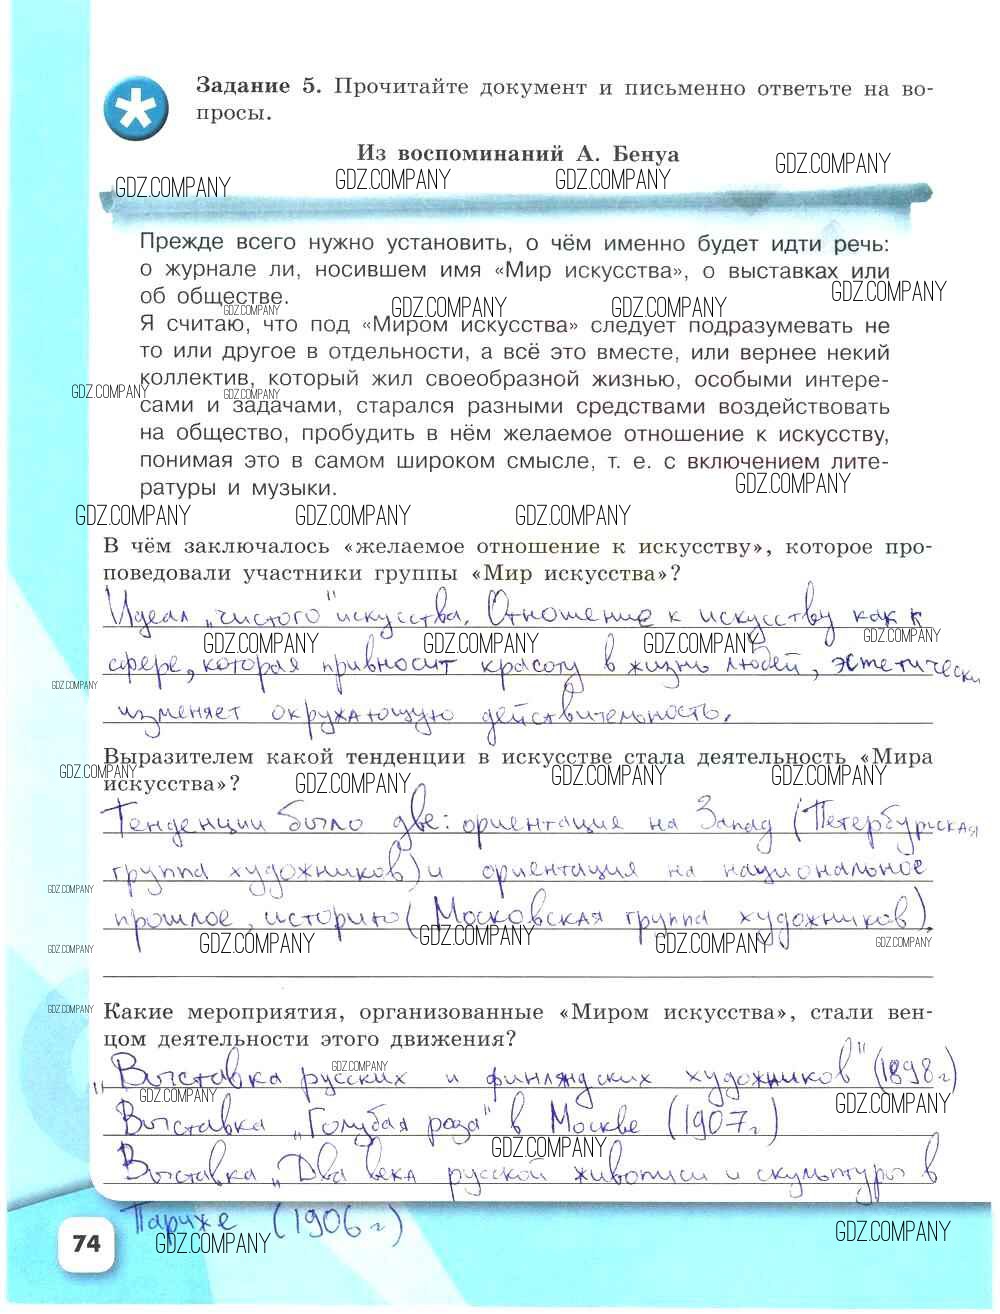 Задание 5. Прочитайте документ и письменно ответьте на во-
просы.
Из воспоминаний А. Бенуа
GDZ.COMPANY GDZ.COMPANY GDZ.COMPANY GDZ.COMPANY
Прежде всего нужно установить, о чём именно будет идти речь:
о журнале ли, носившем имя «Мир искусства», о выставках или
об обществе.
GDZ.COMPANY GDZ.COMPANY GDZ.COMPANY GDZ.COMPANY
Я считаю, что под «Миром искусства» следует подразумевать не
то или другое в отдельности, а всё это вместе, или вернее некий
коллектив, который жил своеобразной жизнью, особыми интере-
GDZ.COMPANY GDZ.COMPANY
сами и задачами, старался разными средствами воздействовать
на общество, пробудить в нём желаемое отношение к искусству,
понимая это в самом широком смысле, т. е. с включением лите-
ратуры и музыки.
GDZ.COMPANY
GDZ.COMPANY GDZ.COMPANY GDZ.COMPANY
В чём заключалось «желаемое отношение к искусству», которое про-
поведовали участники группы «Мир искусства»?
Идеал „чистого" искусства. Отношение к искусству как к
GDZ.COMPANY GDZ.COMPANY GDZ.COMPANY GDZ.COMPANY
сфере, которая привносит красоту в жизнь людей, эстетически
GDZ.COMPANY
изменяет окружающую действительность.
Выразителем какой тенденции в искусстве стала деятельность «Мира
искусства»?
GDZ.COMPANY GDZ.COMPANY GDZ.COMPANY GDZ.COMPANY
Тенденции было две: ориентация на Запад (Петербургская
группа художников) и ориентация на национальное
GDZ.COMPANY
прошлое, историю (Московская группа художников).
GDZ.COMPANY GDZ.COMPANY GDZ.COMPANY GDZ.COMPANY GDZ.COMPANY
GDZ.COMPANY
Какие мероприятия, организованные «Миром искусства», стали вен-
цом деятельности этого движения?
GDZ.COMPANY
„Выставка русских и финляндских художников" (1898 г)
GDZ.COMPANY GDZ.COMPANY
Выставка „Голубая роза" в Москве (1907 г)
GDZ.COMPANY
Выставка „Два века русской живописи и скульптуры в
Париже (1906 г)
74
GDZ.COMPANY GDZ.COMPANY